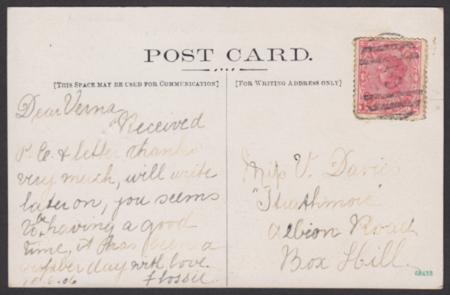 POST CARD.
[THIS SPACE MAY BE USED FOR COMMUNICATION]
Dear Verna
Received
P.C. & letter thanks
very much, will write
later on, you seems
to be having a good
time, it has been a
day with love.
Flossie
[FOR WRITING ADDRESS ONLY]
Miss V. Davies
"Strathmore"
Albion Road
Box Hill.